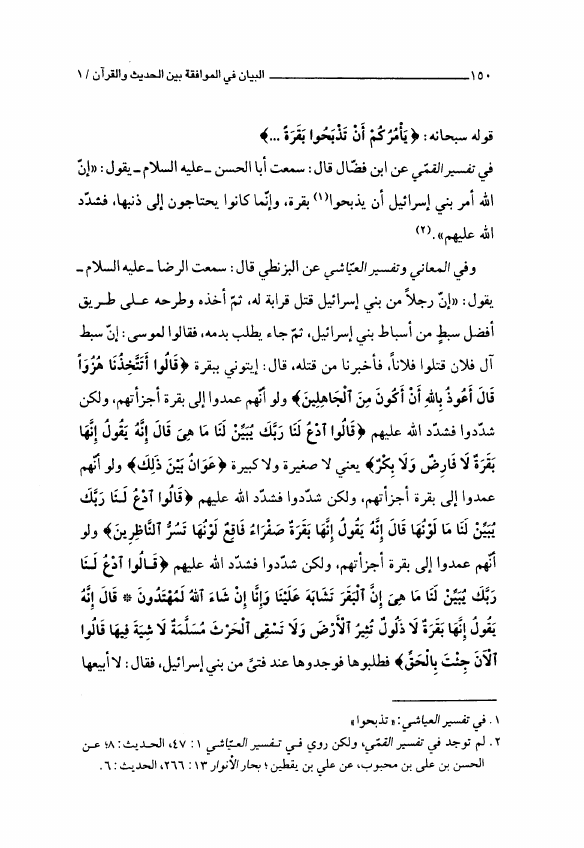 ١٥٠ البيان في الموافقة بين الحديث والقرآن / ١
قوله سبحانه: ﴿يَأْمُرُكُمْ أَنْ تَذْبَحُوا بَقَرَةً ...﴾
في تفسير القمّي عن ابن فضّال قال: سمعت أبا الحسن ـ عليه السلام ـ يقول: «إنّ
الله أمر بني إسرائيل أن يذبحوا(١) بقرة، وإنّما كانوا يحتاجون إلى ذنبها، فشدّد
الله عليهم».(٢)
وفي المعاني وتفسير العيّاشي عن البزنطي قال: سمعت الرضا ـ عليه السلام ـ
يقول: «إنّ رجلاً من بني إسرائيل قتل قرابة له، ثمّ أخذه وطرحه على طريق
أفضل سبطٍ من أسباط بني إسرائيل، ثمّ جاء يطلب بدمه، فقالوا لموسى: إنّ سبط
آل فلان قتلوا فلاناً، فأخبرنا من قتله، قال: إيتوني ببقرة ﴿قَالُوا أَتَتَّخِذُنَا هُزُوَاً
قَالَ أَعُوذُ بِاللهِ أَنْ أَكُونَ مِنَ ٱلْجَاهِلِينَ﴾ ولو أنّهم عمدوا إلى بقرة أجزأتهم، ولكن
شدّدوا فشدّد الله عليهم ﴿قَالُوا ٱدْعُ لَنَا رَبَّكَ يُبَيِّنْ لَنَا مَا هِيَ قَالَ إِنَّهُ يَقُولُ إِنَّهَا
بَقَرَةٌ لَا فَارِضٌ وَلَا بِكْرٌ﴾ يعني لا صغيرة ولا كبيرة ﴿عَوَانٌ بَيْنَ ذَلِكَ﴾ ولو أنّهم
عمدوا إلى بقرة أجزأتهم، ولكن شدّدوا فشدّد الله عليهم ﴿قَالُوا ٱدْعُ لَـنَا رَبَّكَ
يُبَيِّنْ لَنَا مَا لَوْنُهَا قَالَ إِنَّهُ يَقُولُ إِنَّهَا بَقَرَةٌ صَفْرَاءُ فَاقِعٌ لَوْنُهَا تَسُرُّ ٱلنَّاظِرِينَ﴾ ولو
أنّهم عمدوا إلى بقرة أجزأتهم، ولكن شدّدوا فشدّد الله عليهم ﴿قَـالُوا ٱدْعُ لَـنَا
رَبَّكَ يُبَيِّنْ لَنَا مَا هِيَ إِنَّ ٱلْبَقَرَ تَشَابَهَ عَلَيْنَا وَإِنَّا إِنْ شَاءَ ٱللهُ لَمُهْتَدُونَ * قَالَ إِنَّهُ
يَقُولُ إِنَّهَا بَقَرَةٌ لَا ذَلُولٌ تُثِيرُ ٱلْأَرْضَ وَلَا تَسْقِي ٱلْحَرْثَ مُسَلَّمَةٌ لَا شِيَةَ فِيهَا قَالُوا
ٱلْآنَ جِئْتَ بِالْحَقِّ﴾ فطلبوها فوجدوها عند فتىً من بني إسرائيل، فقال: لا أبيعها
١. في تفسير العياشي: «تذبحوا»
٢. لم توجد في تفسير القمّي، ولكن روي فـي تـفسير العـيّاشي ١: ٤٧، الحـديث: ٨؛ عـن
الحسن بن علي بن محبوب، عن علي بن يقطين؛ بحار الأنوار ١٣: ٢٦٦، الحديث: ٦.